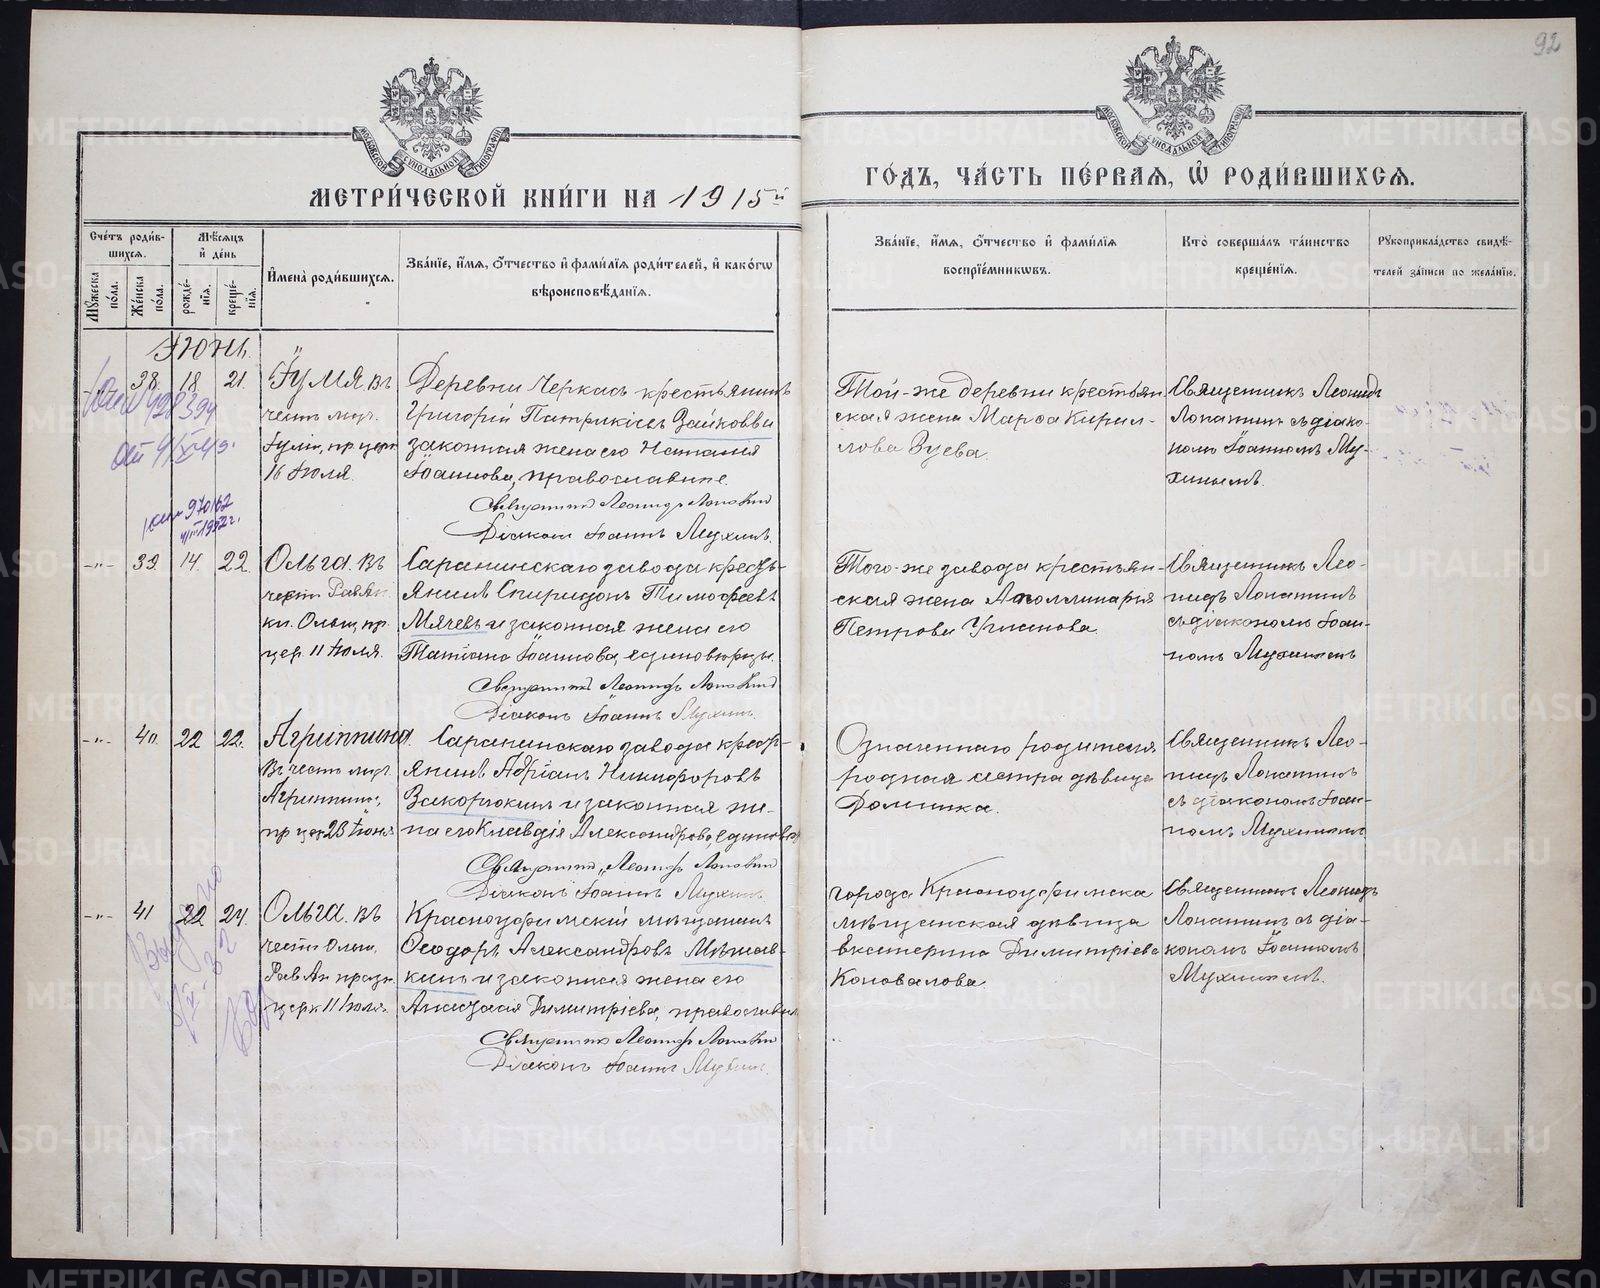 92
МОСКОВСКОЙ СѴНОДАЛЬНОЙ ТИПОГРАФІИ
МОСКОВСКОЙ СѴНОДАЛЬНОЙ ТИПОГРАФІИ
МЕТРИ́ЧЕСКОЙ КНИ́ГИ НА 1915й
ГО́ДЪ, ЧА́СТЬ ПЕ́РВАЯ, Ѡ҆ РОДИ́ВШИХСЯ.
Сче́тъ роди́в-
шихся.
Мꙋ́жеска по́ла.
Же́нска по́ла.
Мѣ́сяцъ и҆ де́нь
рожде́-
нїѧ.
креще́-
нїѧ.
И҆мена̀ роди́вшихся.
Зва́нїе, и҆́мѧ, ѻ҆́тчество и҆ фами́лїѧ роди́телей, и҆ како́гѡ
вѣроисповѣ́данїѧ.
Зва́нїе, и҆́мѧ, ѻ҆́тчество и҆ фами́лїѧ
воспрїе́мниковъ.
Кто̀ соверша́лъ та́инство
креще́нїѧ.
Рꙋкоприкла́дство свидѣ́-
телей за́писи по жела́нїю.
Іюнь.
38. 18 21.
Іулія въ
честь муч.
Іуліи, пр. церк
16 Іюля.
Деревни Черкасъ крестьянинъ
Григорій Патрикіевъ Зайковъ и
законная жена его Наталія
Іоаннова, православные.
Священникъ Леонидъ Лопатинъ
Діаконъ Іоаннъ Мухинъ.
Той-же деревни крестьян-
ская жена Марѳа Кирил-
лова Зуева.
Священникъ Леонидъ
Лопатинъ съ діако-
номъ Іоанномъ Му-
хинымъ.
-„- 39 14. 22.
Ольга. въ
честь Равн.
кн. Ольги, пр.
цер. 11 Іюля.
Саранинскаго завода кресть-
янинъ Спиридонъ Тимоѳеевъ
Мячевъ и законная жена его
Татіана Іоаннова, единовѣрцы.
Священникъ Леонидъ Лопатинъ
Діаконъ Іоаннъ Мухинъ.
Того-же завода крестьян-
ская жена Аполлинарія
Петрова
Священникъ Лео-
нидъ Лопатинъ
съ діакономъ Іоан-
номъ Мухинымъ
-„- 40. 22 22.
Агриппина.
Въ честь муч.
Агриппины,
пр. цер 23 Іюня
Саранинскаго завода кресть-
янинъ Адріанъ Никифоровъ
Закорюкинъ и законная же-
на его Клавдія Александрова, единовѣр
Священникъ Леонидъ Лопатинъ
Діаконъ Іоаннъ Мухинъ.
Означеннаго родителя
родная сестра дѣвица
Домника.
Священникъ Лео-
нидъ Лопатинъ
съ діакономъ Іоан-
номъ Мухинымъ
-„- 41 22 24.
Ольга. въ
честь Ольги,
Рав Ап. празд.
церк 11 Іюля.
Красноуфимскій мѣщанинъ
Ѳеодоръ Александровъ
и законная жена его
Анастасія Димитріева, православные
Священникъ Леонидъ Лопатинъ
Діаконъ Іоаннъ Мухинъ.
города Красноуфимска
мѣщанская дѣвица
Екатерина Димитріева
Коновалова.
Священникъ Леонидъ
Лопатинъ съ діа-
кономъ Іоанномъ
Мухинымъ.
METRIKI.GASO-URAL.RU